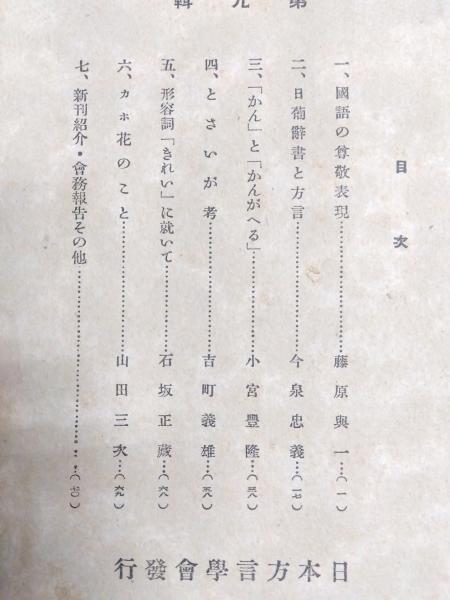 第九輯
目次
一、國語の尊敬表現……藤原與一…(一)
二、日葡辭書と方言……今泉忠義…(一七)
三、「かん」と「かんがへる」……小宮豐隆…(三八)
四、とさいが考……吉町義雄…(五八)
五、形容詞「きれい」に就いて……石坂正藏…(六八)
六、カホ花のこと……山田三次…(六九)
七、新刊紹介・會務報告その他……(七〇)
日本方言學會發行